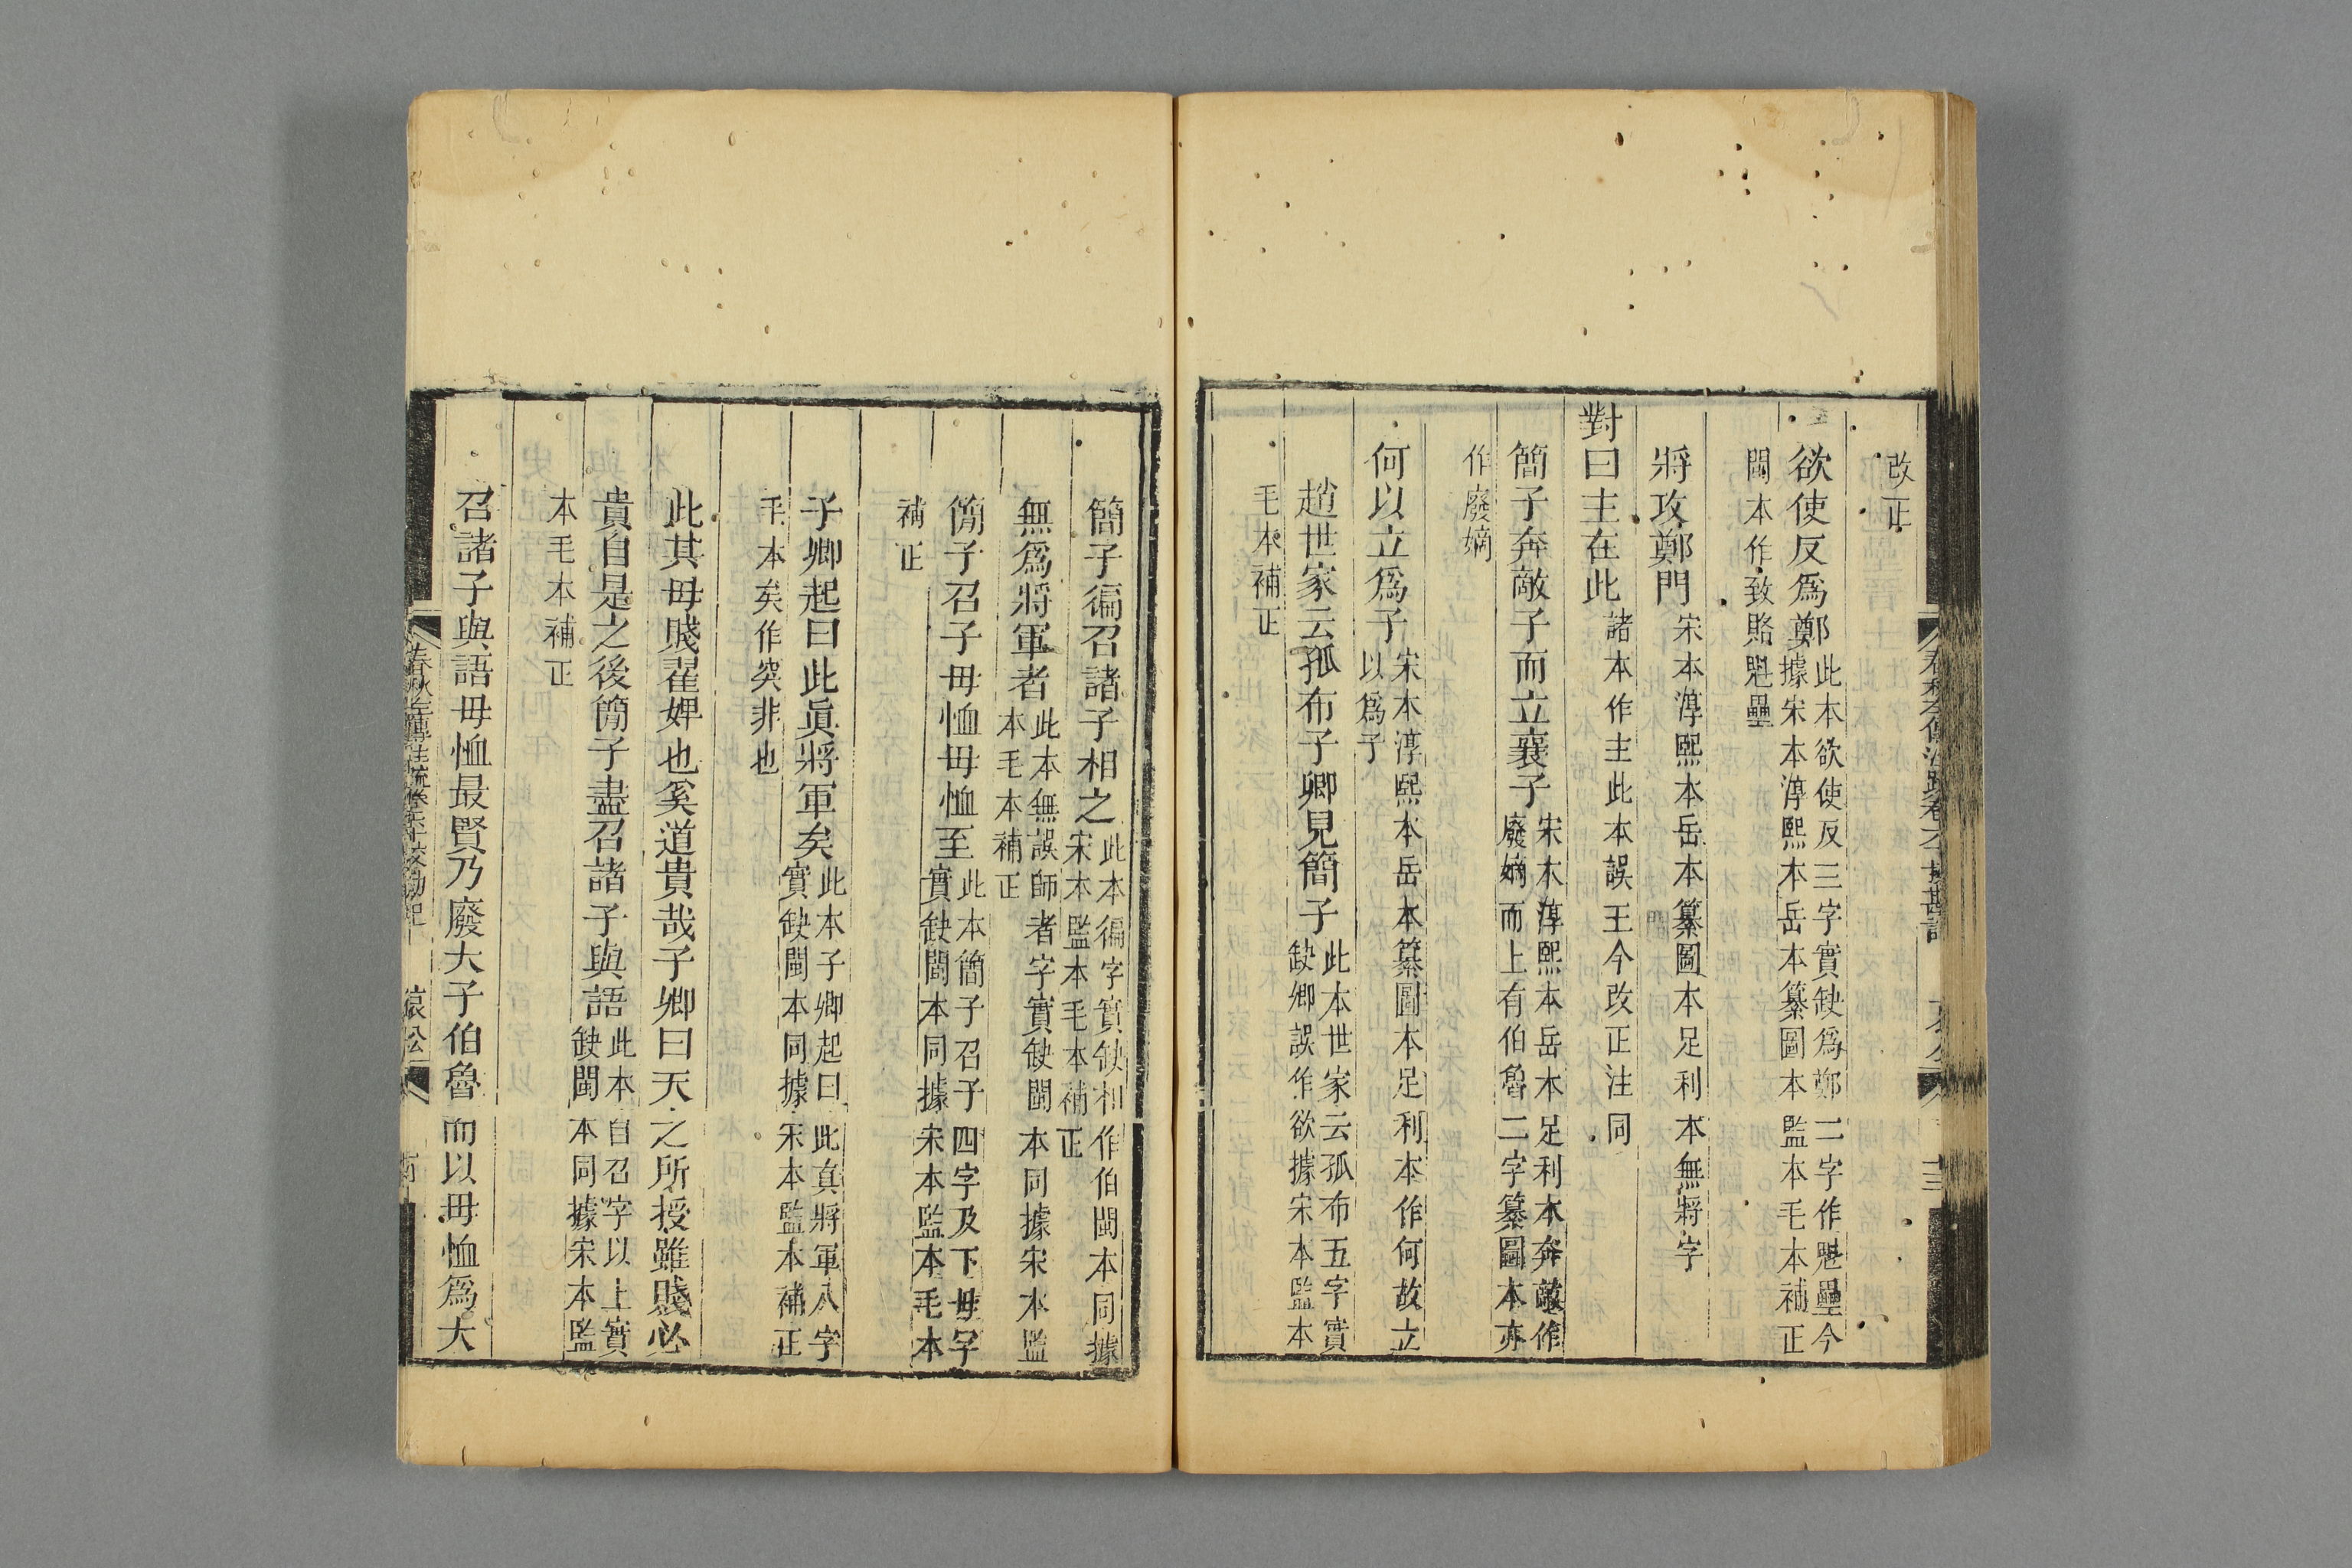 改正
欲使反爲鄭此本欲使反三字實缺爲鄭二字作魁壘今據宋本淳熙本岳本纂圖本監本毛本補正
閩本作致賂魁壘
將攻鄭門宋本淳熙本岳本纂圖本足利本無將字
對曰主在此諸本作主此本誤王今改正注同
簡子奔敵子而立襄子宋本淳熙本岳本足利本奔敵作廢嫡而上有伯魯二字纂圖本亦
作廢嫡
何以立爲子宋本淳熙本岳本纂圖本足利本作何故立以爲子
趙世家云孤布子卿見簡子此本世家云孤布五字實缺卿誤作欲據宋本監本
毛本補正
簡子徧召諸子相之此本徧字實缺相作伯閩本同據宋本監本毛本補正
無爲將軍者此本無誤師者字實缺閩本同據宋本監本毛本補正
簡子召子毋恤毋恤至此本簡子召子四字及下毋字實缺閩本同據宋本監本毛本
補正
子卿起曰此眞將軍矣此本子卿起曰此真將軍八字實缺閩本同據宋本監本補正
毛本矣作突非也
此其母賤翟婢也奚道貴哉子卿曰天之所授雖賤必
貴自是之後簡子盡召諸子與語此本自召字以上實缺閩本同據宋本監
本毛本補正
召諸子與語毋恤最賢乃廢大子伯魯而以毋恤爲大
春秋左傳注疏卷六十校勘記